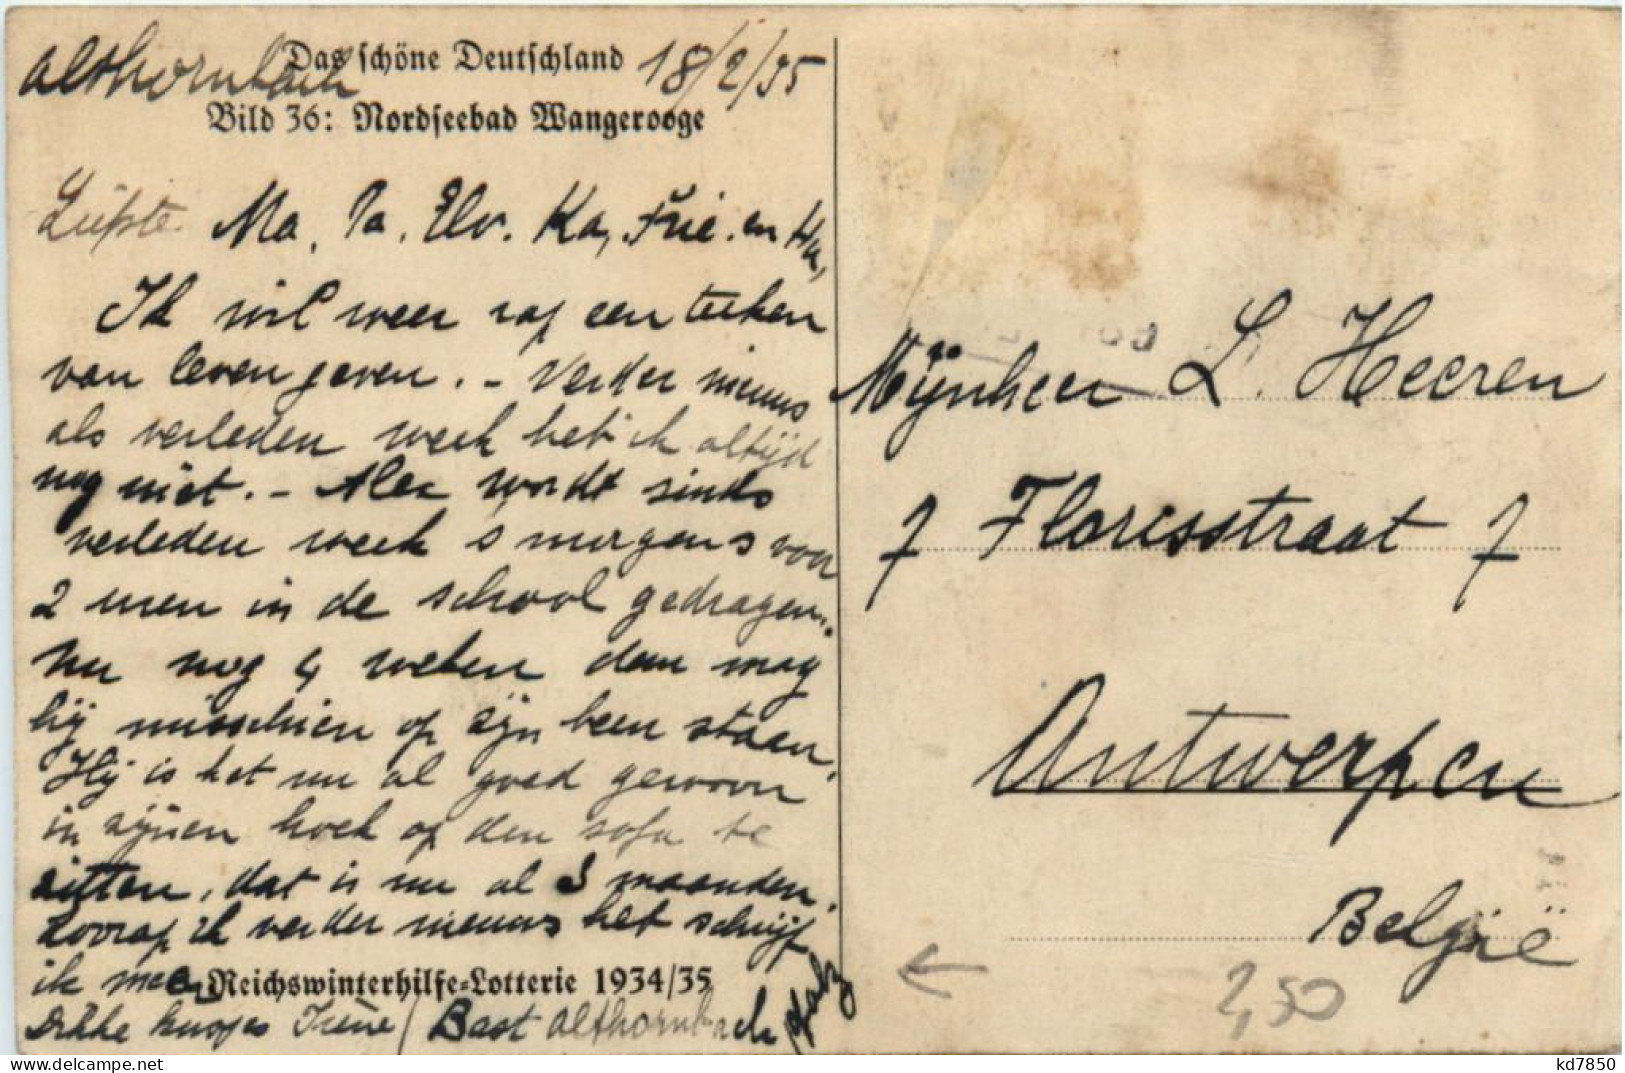 Althornbach 18/2/35
Das schöne Deutschland
Bild 36: Nordseebad Wangerooge
Liefste Ma, Pa, Elv. Ka, Frie. en
Ik wil weer rap een teeken
van leven geven. - Verder nieuws
als verleden week heb ik altijd
nog niet. - Alex wordt sinds
verleden week s morgens voor
2 men in de school gedragen.
nu nog 4 weken dan mag
hij misschien op zijn been staan.
Hij is het nu al goed gewoon
in zijnen hoek op den sofa te
zitten, dat is nu al 3 maanden.
Zoorap ik verder nieuws heb schrijf
ik mee
Reichswinterhilfe-Lotterie 1934/35
Dikke kusjes Irene / Bast Althornbach Pfalz
Mijnheer L. Heeren
7 Florisstraat 7
Antwerpen
België
2,50
kd7850